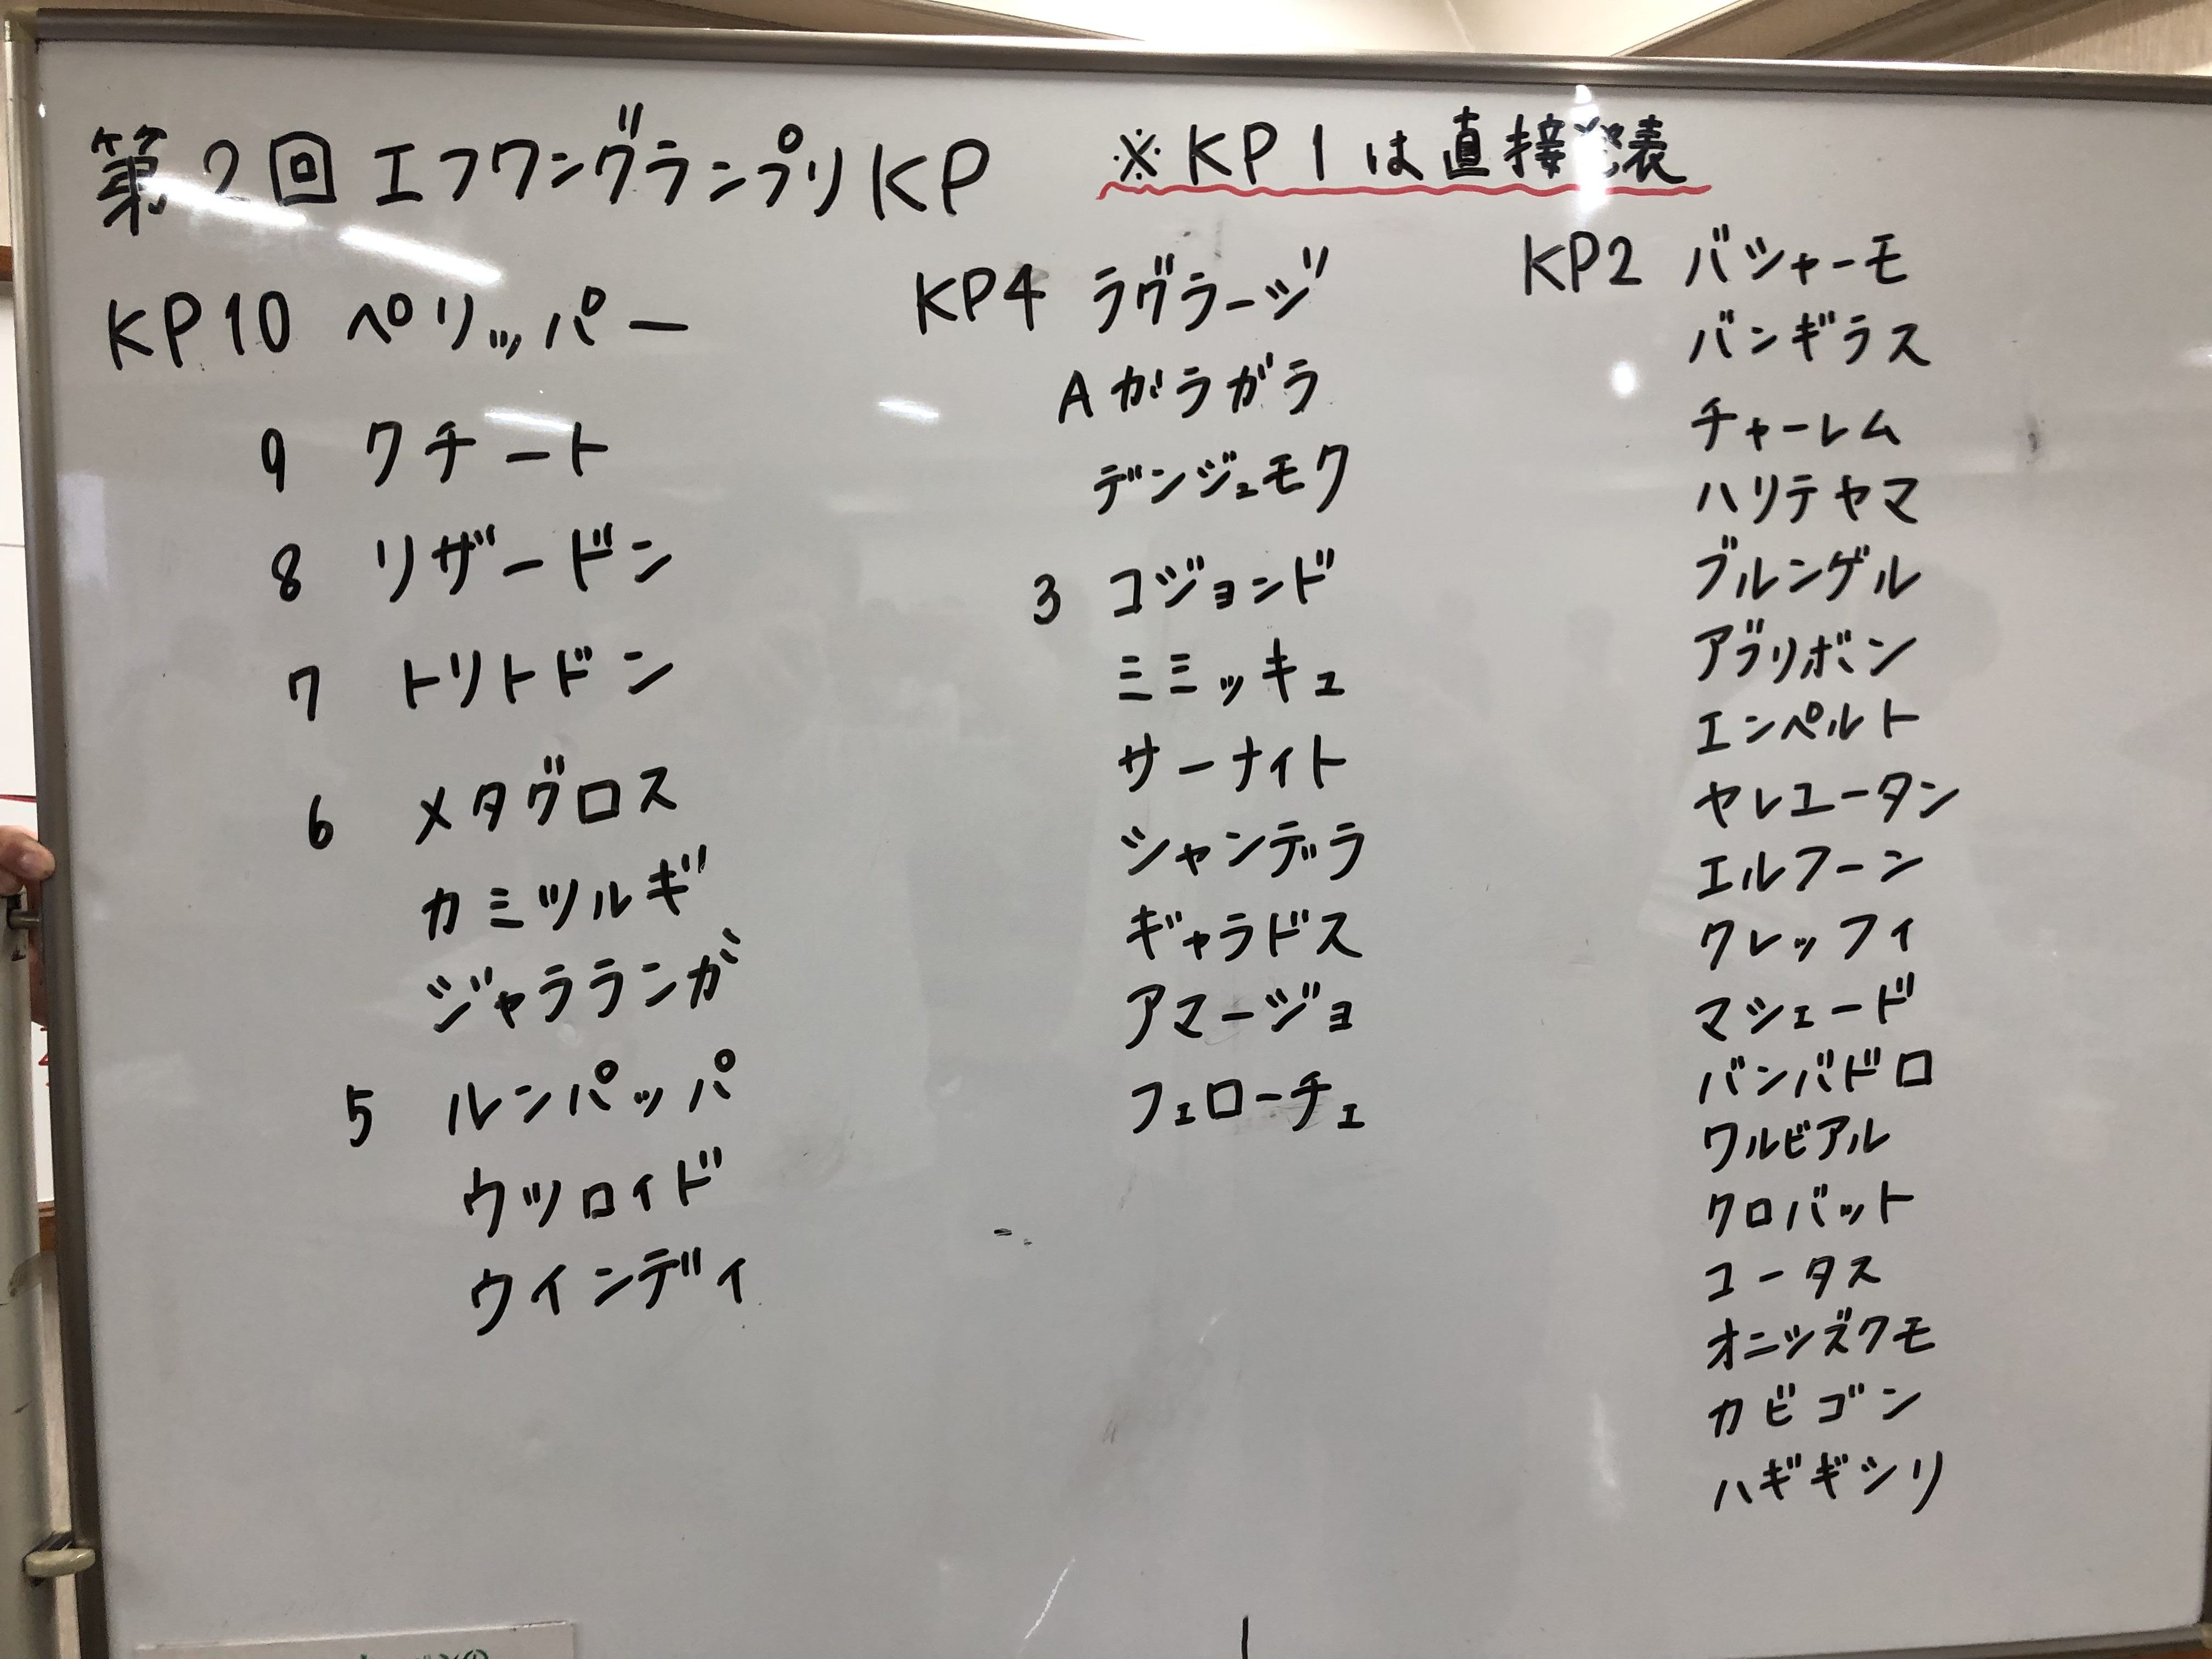 第2回エフワングランプリKP
※KP1は直接発表
KP10 ペリッパー
9 クチート
8 リザードン
7 トリトドン
6 メタグロス
カミツルギ
ジャラランガ
5 ルンパッパ
ウツロイド
ウインディ
KP4 ラグラージ
Aガラガラ
デンジュモク
3 コジョンド
ミミッキュ
サーナイト
シャンデラ
ギャラドス
アマージョ
フェローチェ
KP2 バシャーモ
バンギラス
チャーレム
ハリテヤマ
ブルンゲル
アブリボン
エンペルト
ヤレユータン
エルフーン
クレッフィ
マシェード
バンバドロ
ワルビアル
クロバット
コータス
オニシズクモ
カビゴン
ハギギシリ